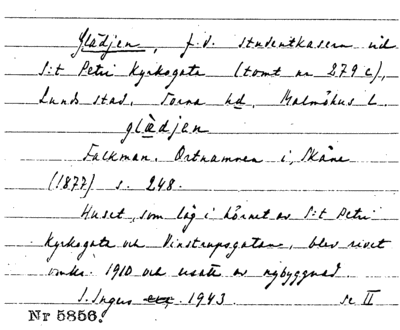 Glädjen, f.d. studentkasern vid
S:t Petri Kyrkogata (tomt nr 279 c),
Lunds stad, Torna hd, Malmöhus l.
glädjen
Falkman. Ortnamnen i Skåne
(1877) s. 248.
Huset, som låg i hörnet av S:t Petri
Kyrkogata och Winstrupsgatan, blev rivet
omkr. 1910 och ersatt av nybyggnad
S. Ingers 1943. se II
Nr 5856.